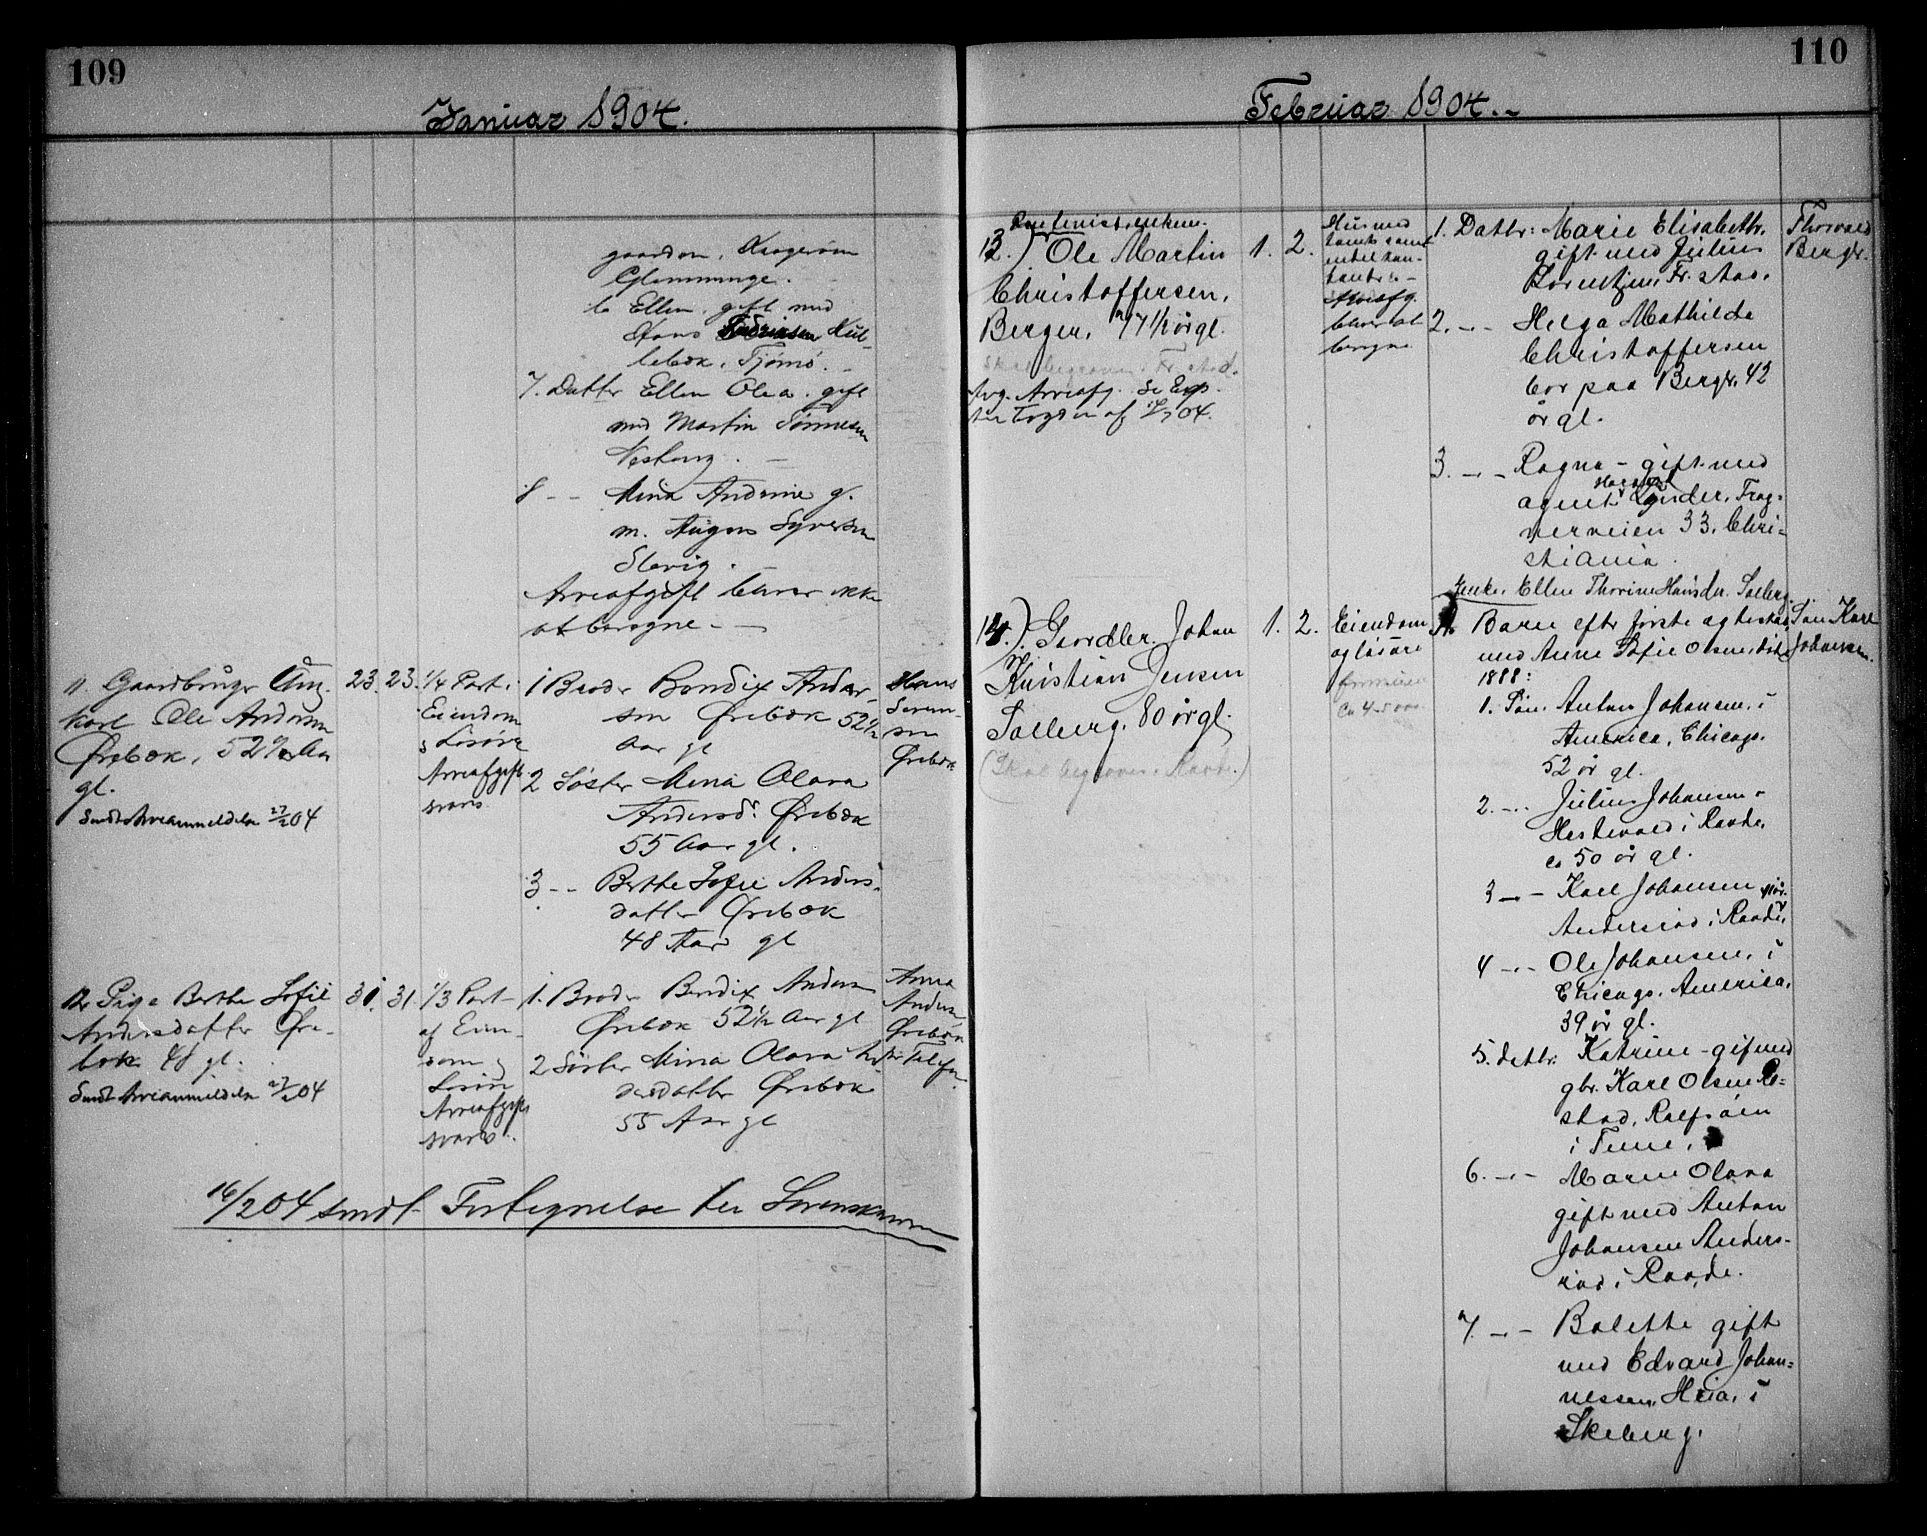 109
Januar 1904.
gaarden,
Glemminge.
b Ellen, gift med
Hans Kul-
lebæk, Tjømø.
7. Datter Ellen Olea. gift
med Martin
8 - - Mina Andrine g.
m. August Syversen
Slevig.
Arveafgift bliver ikke
at beregne. -
11. Gaardbruger Ung-
karl Ole Andersen
Ørebæk, 52 Aar
gl.
Sendt Arveanmeldelse 27/2 04
23. 23.
1/4 Part i
Eiendom
& Løsøre
Arveafgift
svares
1 Broder Bendix Ander-
sen Ørebæk 52 1/2
Aar gl
2 Søster Mina Olava
Andersd: Ørebæk
55 Aar gl.
3 - - Berthe Sofie Anders-
datter Ørebæk
48 Aar gl
Hans
Soren-
sen
Ørebæk
12. Pige Berthe Sofie
Andersdatter Øre-
bæk 48 gl.
Sendt Arveanmeldelse 27/2 04
31. 31.
1/3 Part
af Eien-
dom &
Løsøre
Arveafgift
svares.
1. Broder Bendix Andersen
Ørebæk 52 1/2 Aar gl
2 Søster Mina Olava An-
dersdatter Ørebæk
55 Aar gl
Anna
Andersen
Ørebæk
Telefon
16/2 04 sendt Fortegnelse til Sorenskriveren
110
Februar 1904. -
13.) Ole Martin
Christoffersen,
Berger, 77 1/2 år gl.
Skal begraves i Fr.stad.
Arveafg. Se Exp.
fra Fogden af 04.
1. 2.
Hus med
tomt samt
Arveafg.
bliver at
beregne
1. Datter: Marie Elisabeth,
gift med Julius
Lorentzen, Fr.stad.
2. - - Helga Mathilde
Christoffersen
bor paa Berger, 42
år gl.
3. - - Ragna - gift med
agent Gunder, Frog-
nerveien 33, Chri-
stiania.
Thorvald
Berger.
14.) Gjordler Johan
Kristian Jensen
Solberg, 80 år gl.
(Skal begraves i Raade.)
1. 2.
Eiendom
og løsøre
formue
ca 4-5000
Enke, Ellen Thorine Hansdr. Solberg.
Børn efter første ægteskab
med Anne Sofie Olsen, død
1888:
1. Søn, Anton Johansen, i
America, Chicago.
52 år gl.
2. - - Julius Johansen -
Hestevold i Raade.
ca 50 år gl.
3 - - Karl Johansen
Andersrød i Raade,
4 - - Ole Johansen, i
Chicago, America,
39 år gl.
5. datter: Katrine - gift med
gbr. Karl Olsen Re-
stad, Rolfsøen
i Tune,
6. - - Maren Olava
gift med Anton
Johansen Anders-
rød i Raade.
7. - - Bolette gift
med Edvard Johan-
nessen, Heia, i
Skeberg.
Søn Karl
Johansen.